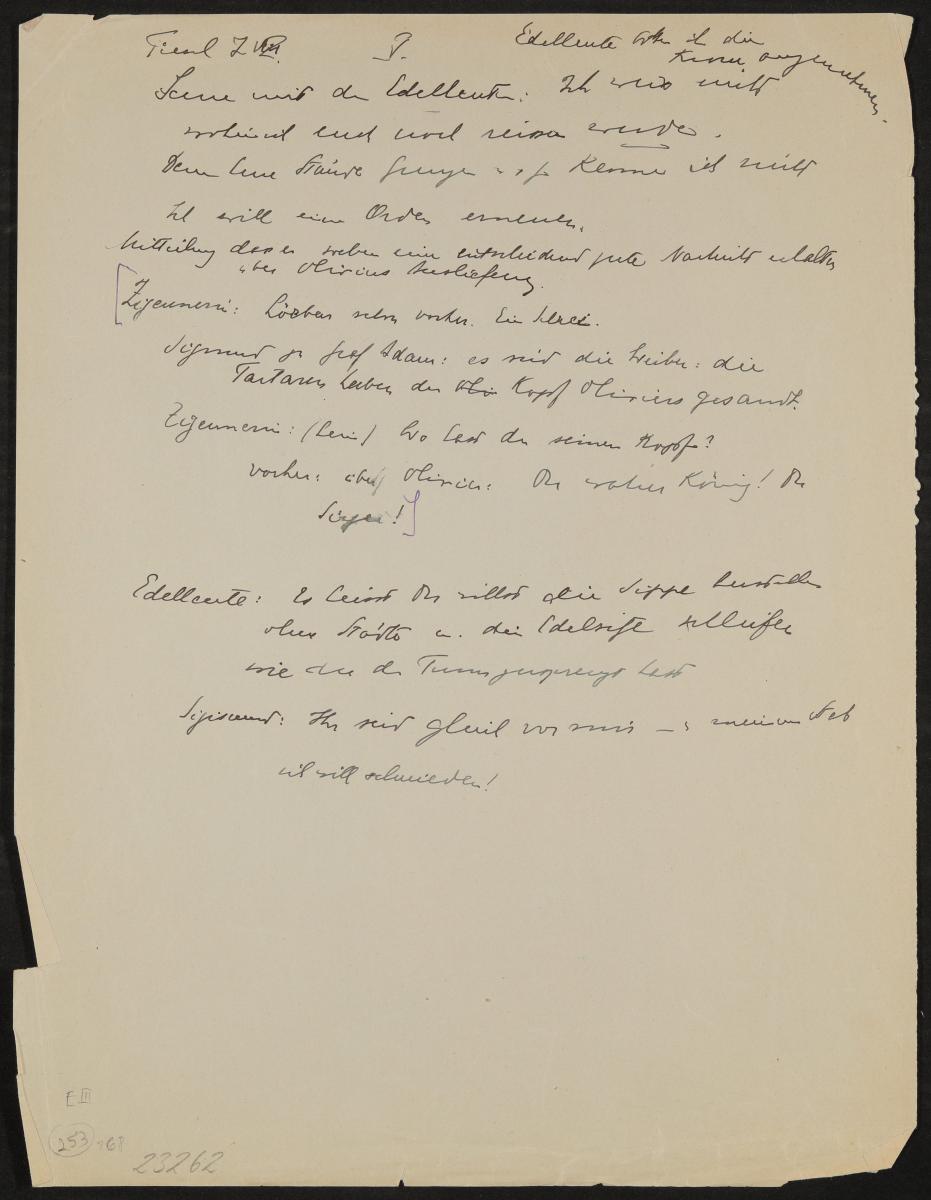 V.
Edelleute die
Krone angenehmer.
Scene mit den Edelleuten: Ich weiss nicht
wohin ich euch noch reissen werde.
Denn eure Stände kenne ich nicht
Ich will eine Orden erneuern.
Mitteilung dass er soeben eine entscheidend gute Nachricht erhalten
über Oliviers Auslieferung.
[Zigeunerin: schon vorher. Ein
Sigismund zu Graf Adam: es sind die Weiber: die
Tartaren haben den Oliv Kopf Oliviers gesandt.
Zigeunerin: (herein) Wo hast du seinen Kopf?
vorher: über Olivier: Der wahre König! Der
Sieger!]
Edelleute: Es heisst Du willst die Sippe herstellen
ohne Städte u. die Edelsitze schleifen
wie du den Turm gesprengt hast
Sigismund: Ihr seid gleich vor mir – : meinem Stab
ich will schmieden!
E III
253
23262